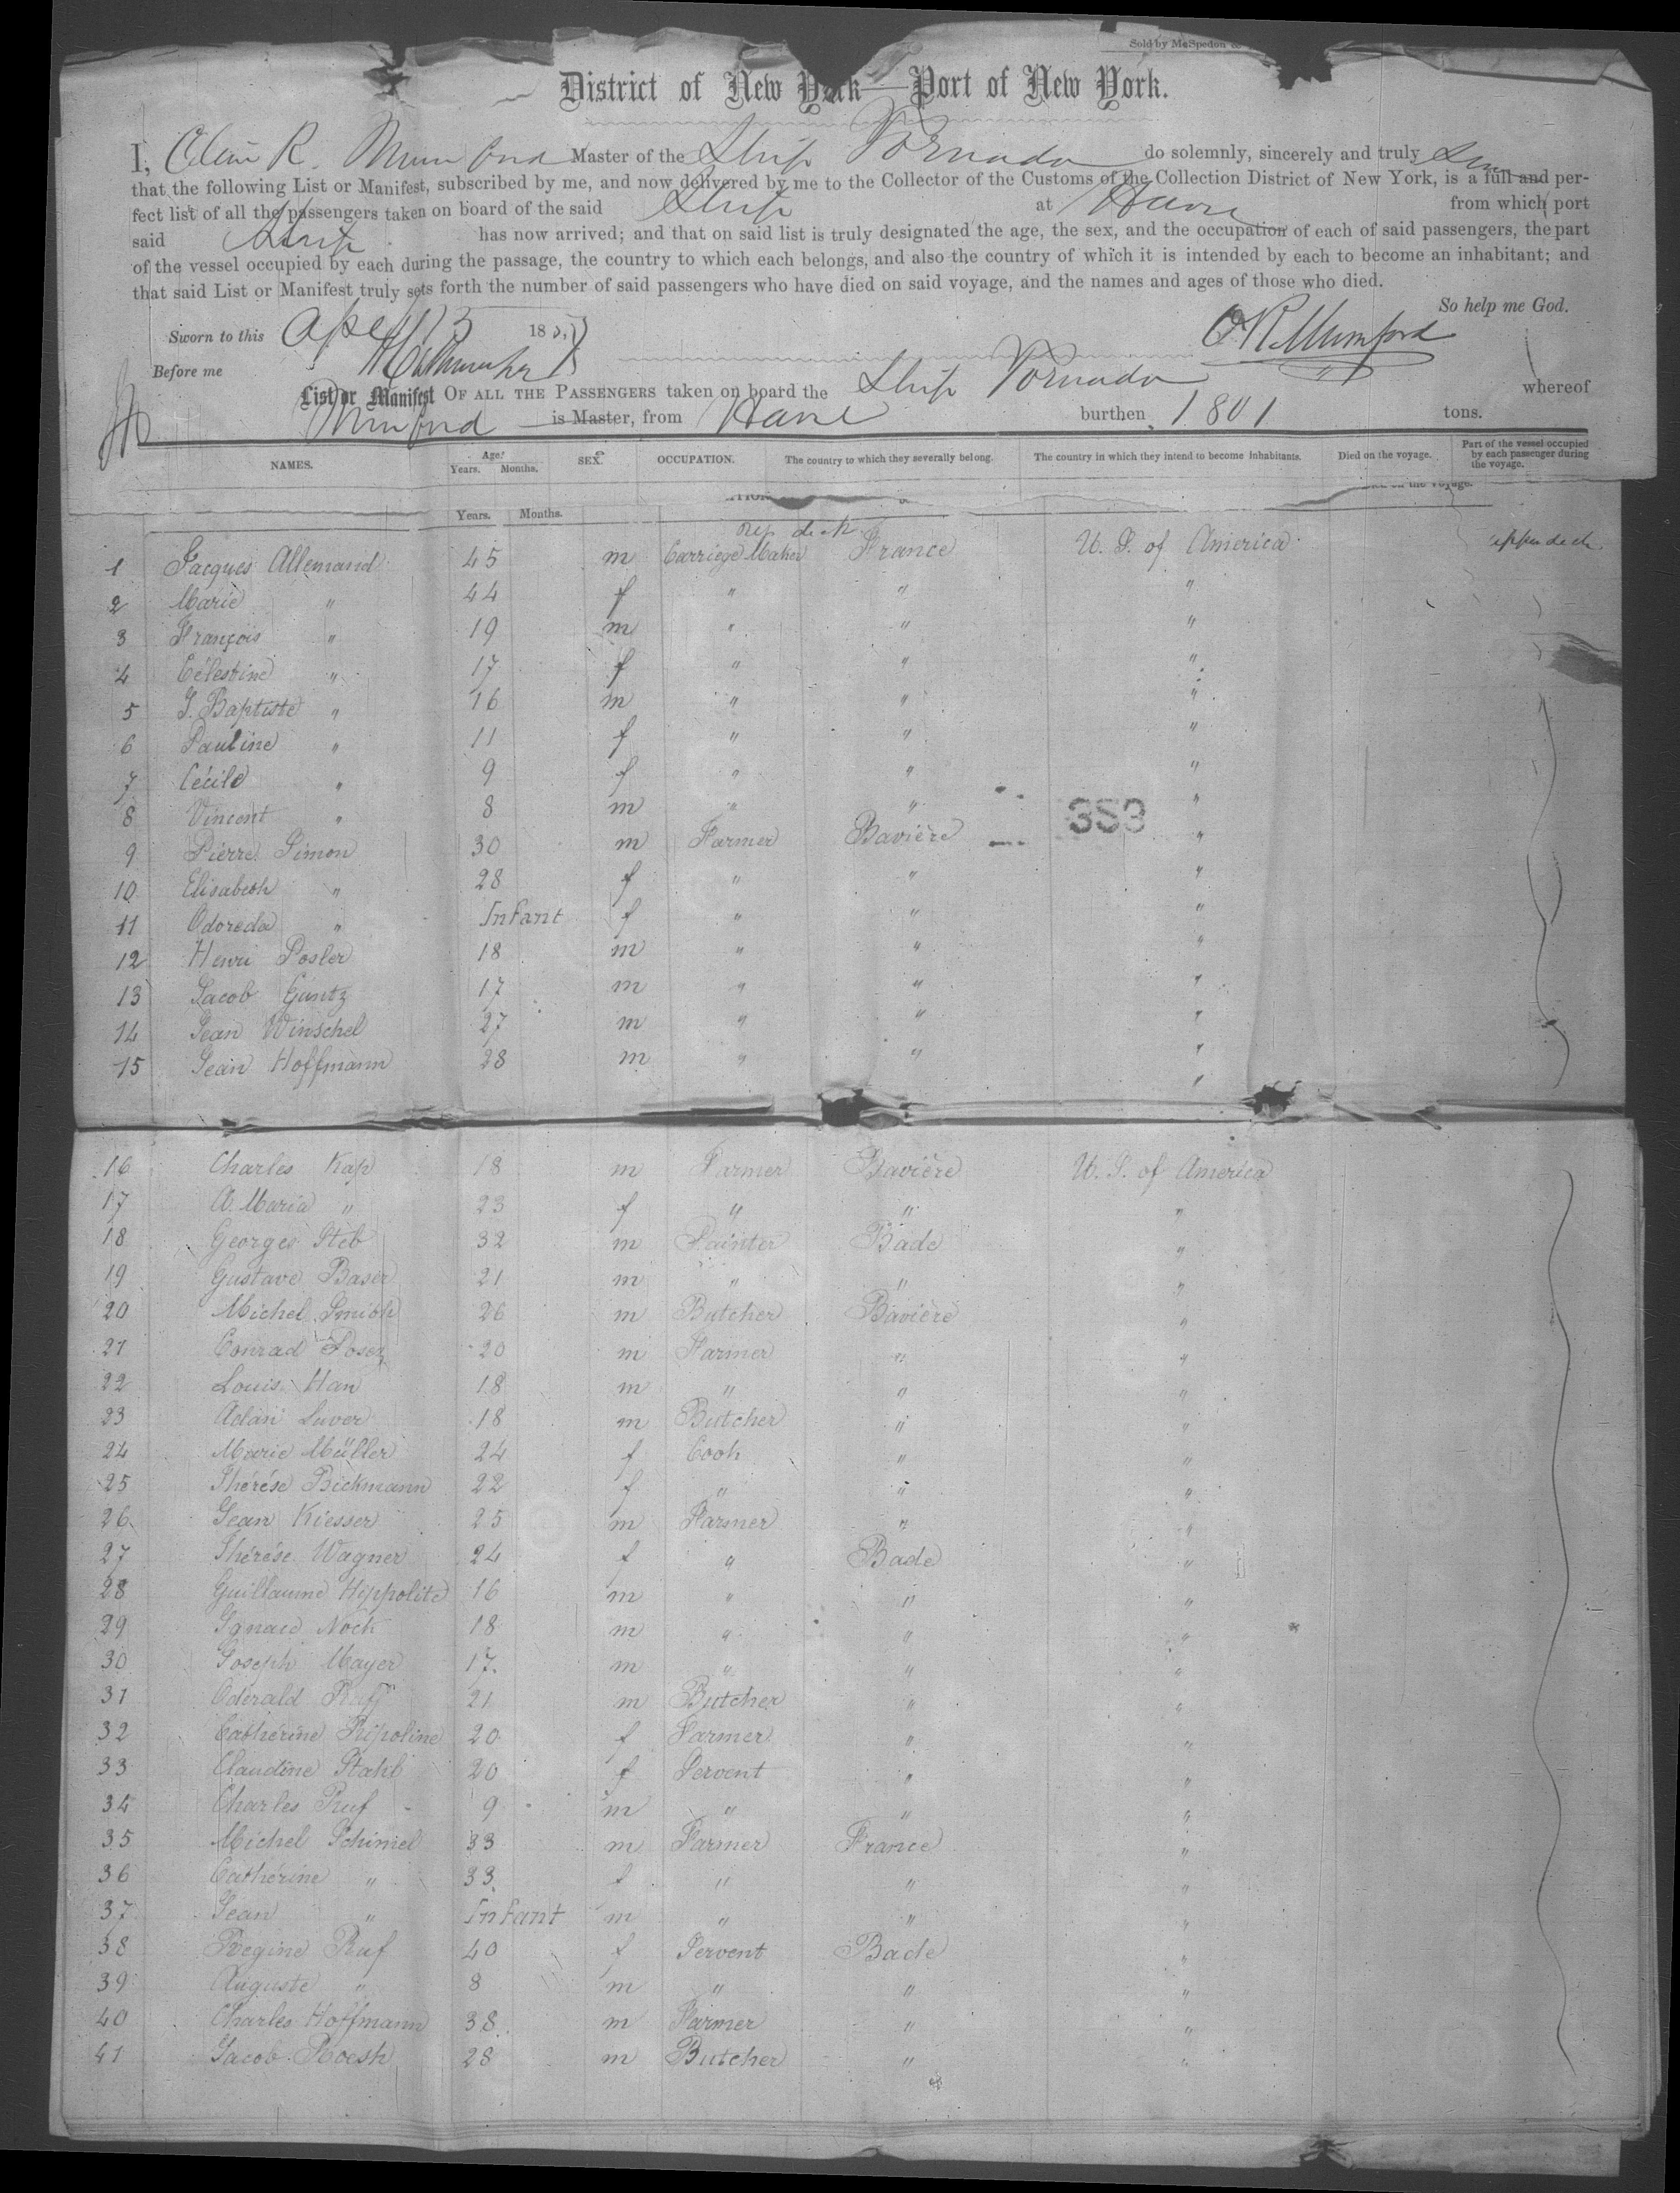 Sold by McSpedon &
District of New York—Port of New York.
I, R. Mumford Master of the Ship Tornado do solemnly, sincerely and truly
that the following List or Manifest, subscribed by me, and now delivered by me to the Collector of the Customs of the Collection District of New York, is a full and per-
fect list of all the passengers taken on board of the said Ship at Havre from which port
said Ship has now arrived; and that on said list is truly designated the age, the sex, and the occupation of each of said passengers, the part
of the vessel occupied by each during the passage, the country to which each belongs, and also the country of which it is intended by each to become an inhabitant; and
that said List or Manifest truly sets forth the number of said passengers who have died on said voyage, and the names and ages of those who died.
So help me God.
Sworn to this April 15 185
O R Mumford
Before me
List or Manifest OF ALL THE PASSENGERS taken on board the Ship Tornado whereof
Mumford is Master, from Havre burthen 1801 tons.
NAMES. Age. Years. Months. SEX. OCCUPATION. The country to which they severally belong. The country in which they intend to become inhabitants. Died on the voyage. Part of the vessel occupied by each passenger during the voyage.
Years. Months.
upp deck
1 Jacques Allemand 45 m Carriege Maker France U. S. of America upper deck
2 Marie " 44 f " " "
3 François " 19 m " " "
4 Célestine " 17 f " " "
5 J. Baptiste " 16 m " " "
6 Pauline " 11 f " " "
7 Cécile " 9 f " " "
8 Vincent " 8 m " " "
353
9 Pierre Simon 30 m Farmer Bavière "
10 Elisabeth " 28 f " " "
11 Odoreda " Infant f " " "
12 Henri Posler 18 m " " "
13 Jacob Guntz 17 m " " "
14 Jean Winschel 27 m " " "
15 Jean Hoffmann 28 m " " "
16 Charles Kap 18 m Farmer Bavière U. S. of America
17 A. Maria " 23 f " " "
18 Georges Steb 32 m Painter Bade "
19 Gustave Baser 21 m " " "
20 Michel Smith 26 m Butcher Bavière "
21 Conrad 20 m Farmer " "
22 Louis Han 18 m " " "
23 Adan Luver 18 m Butcher " "
24 Marie Müller 24 f Cook " "
25 Thérése Bickmann 22 f " " "
26 Jean Kiesser 25 m Farmer " "
27 Thérése Wagner 24 f " Bade "
28 Guillaume Hippolite 16 m " " "
29 Ignace Nock 18 m " " "
30 Joseph Mayer 17 m " " "
31 Oderald Ruf 21 m Butcher " "
32 Cathérine Ripoline 20 f Farmer " "
33 Claudine Stahl 20 f Servent " "
34 Charles Ruf 9 m " " "
35 Michel Schimel 33 m Farmer France "
36 Cathérine " 33 f " " "
37 Jean " Infant m " " "
38 Regine Ruf 40 f Servent Bade "
39 Auguste " 8 m " " "
40 Charles Hoffmann 38 m Farmer " "
41 Jacob Roesh 28 m Butcher " "